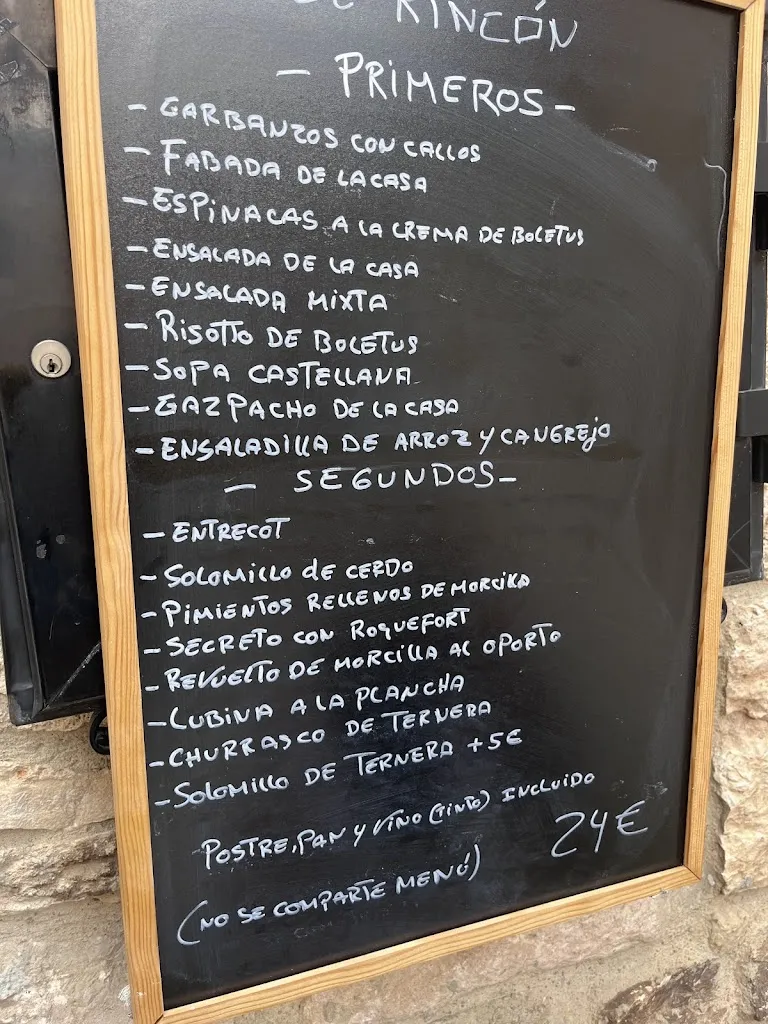 DE RINCÓN
- PRIMEROS -
- GARBANZOS CON CALLOS
- FABADA DE LA CASA
- ESPINACAS A LA CREMA DE BOLETUS
- ENSALADA DE LA CASA
- ENSALADA MIXTA
- RISOTTO DE BOLETUS
- SOPA CASTELLANA
- GAZPACHO DE LA CASA
- ENSALADILLA DE ARROZ Y CANGREJO
- SEGUNDOS -
- ENTRECOT
- SOLOMILLO de CERDO
- PIMIENTOS RELLENOS DE MORCILLA
- SECRETO CON ROQUEFORT
- REVUELTO DE MORCILLA AL OPORTO
- LUBINA A LA PLANCHA
- CHURRASCO DE TERNERA
- SOLOMILLO DE TERNERA +5€
POSTRE, PAN Y VINO (TINTO) INCLUIDO
24€
(NO SE COMPARTE MENÚ)